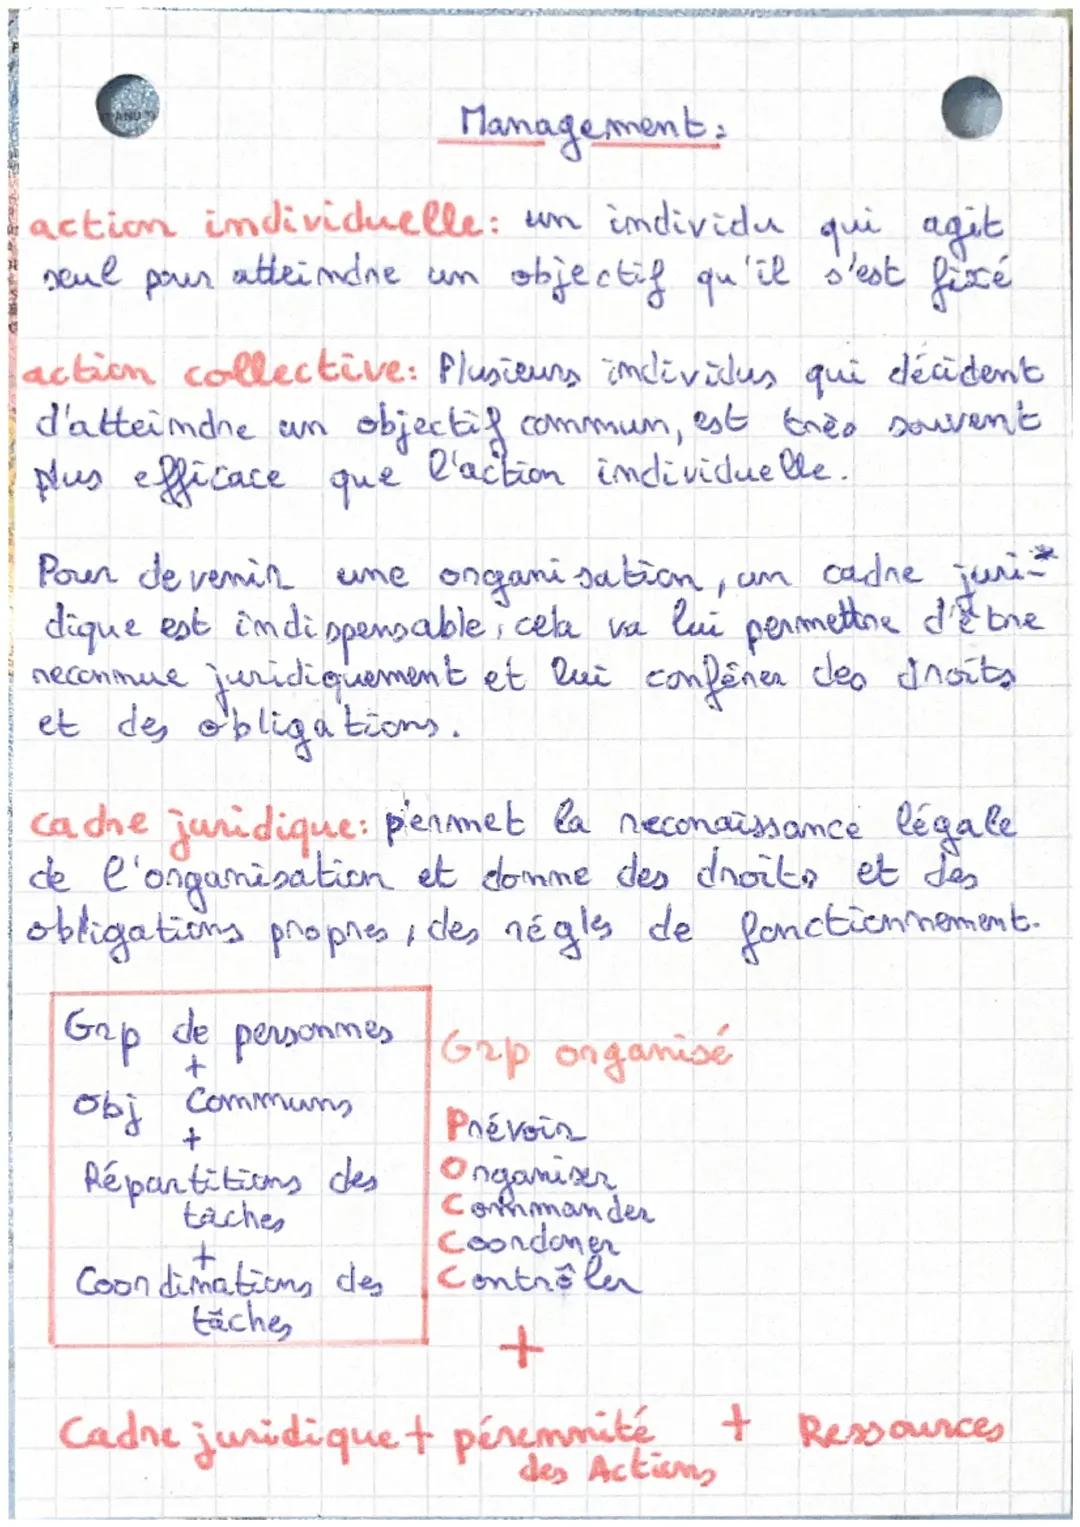 Management:
action individuelle: un individu qui agit
seul pour atteindre un objectif qu'il s'est fixé
action collective: Plusieurs individus qui décident
d'atteindre un objectif commun, est très souvent
plus efficace que l'action individuelle.
Pour devenir une organisation, un cadre juri-*
dique est indispensable, cela va lui permettre d'être
reconnue juridiquement et lui conférer des droits
et des obligations.
cadre juridique: permet la reconaissance légale
de l'organisation et donne des droits et des
obligations propres, des régles de fonctionnement.
Grp de personnes
+
Obj Communs
+
Répartitions des
tâches
+
Coordinations des
tâches
Grp organisé
Prévoir
Organiser
Commander
Coordoner
Contrôler
+
Cadre juridique + pérennité + Ressources
des Actions